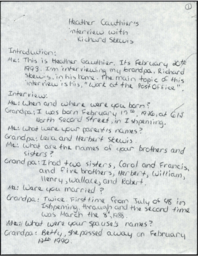 ①
Heather Gauthier's
interview with
Richard Stewis
Introduction:
Me: This is Heather Gauthier. Its February 20th
1993. I'm interviewing my Grandpa, Richard
in his home. The main topic of this
interview is his, "work at the Post Office".
Interview:
Me: When and where were you born?
Grandpa: I was born February 1920, at 619
North Second Street, in Ishpeming.
Me: What were your parents names?
Grandpa: Lara, and Herbert
Me: What are the names of your brothers and
sisters?
Grandpa: I had two sisters, Carol and Francis,
and five brothers, Herbert, William,
Henry, Wallace, and Robert.
Me: Were you married?
Grandpa: Twice. First time from July of 48 in
Ishpeming, through and the second time
was March the
Me: What were your spouse's names?
Grandpa: Betty, she passed away on February
1990